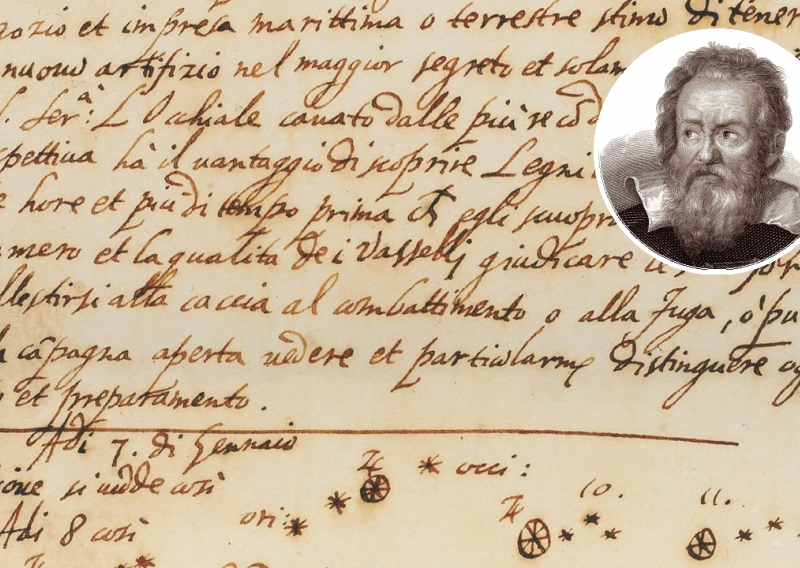 gozio et impresa marittima o terrestre stimo di tener
nuouo artifizio nel maggior segreto et solam
Ser.à: L Ochiale cauato dalle più recõd
spettiua hà il uantaggio di scoprire Legni
hore et più di tempo prima ch egli scuopr
mero et la qualita de i Vasselli giudicare
llestirsi alla caccia al combattimento o alla fuga, ò pu
cãpagna aperta uedere et particularme distinguere og
et preparamento.
Adi 7. di Gennaio
ione si uidde così
♃ * occi:
ori: * *
10.
11.
Adi 8 così
♃